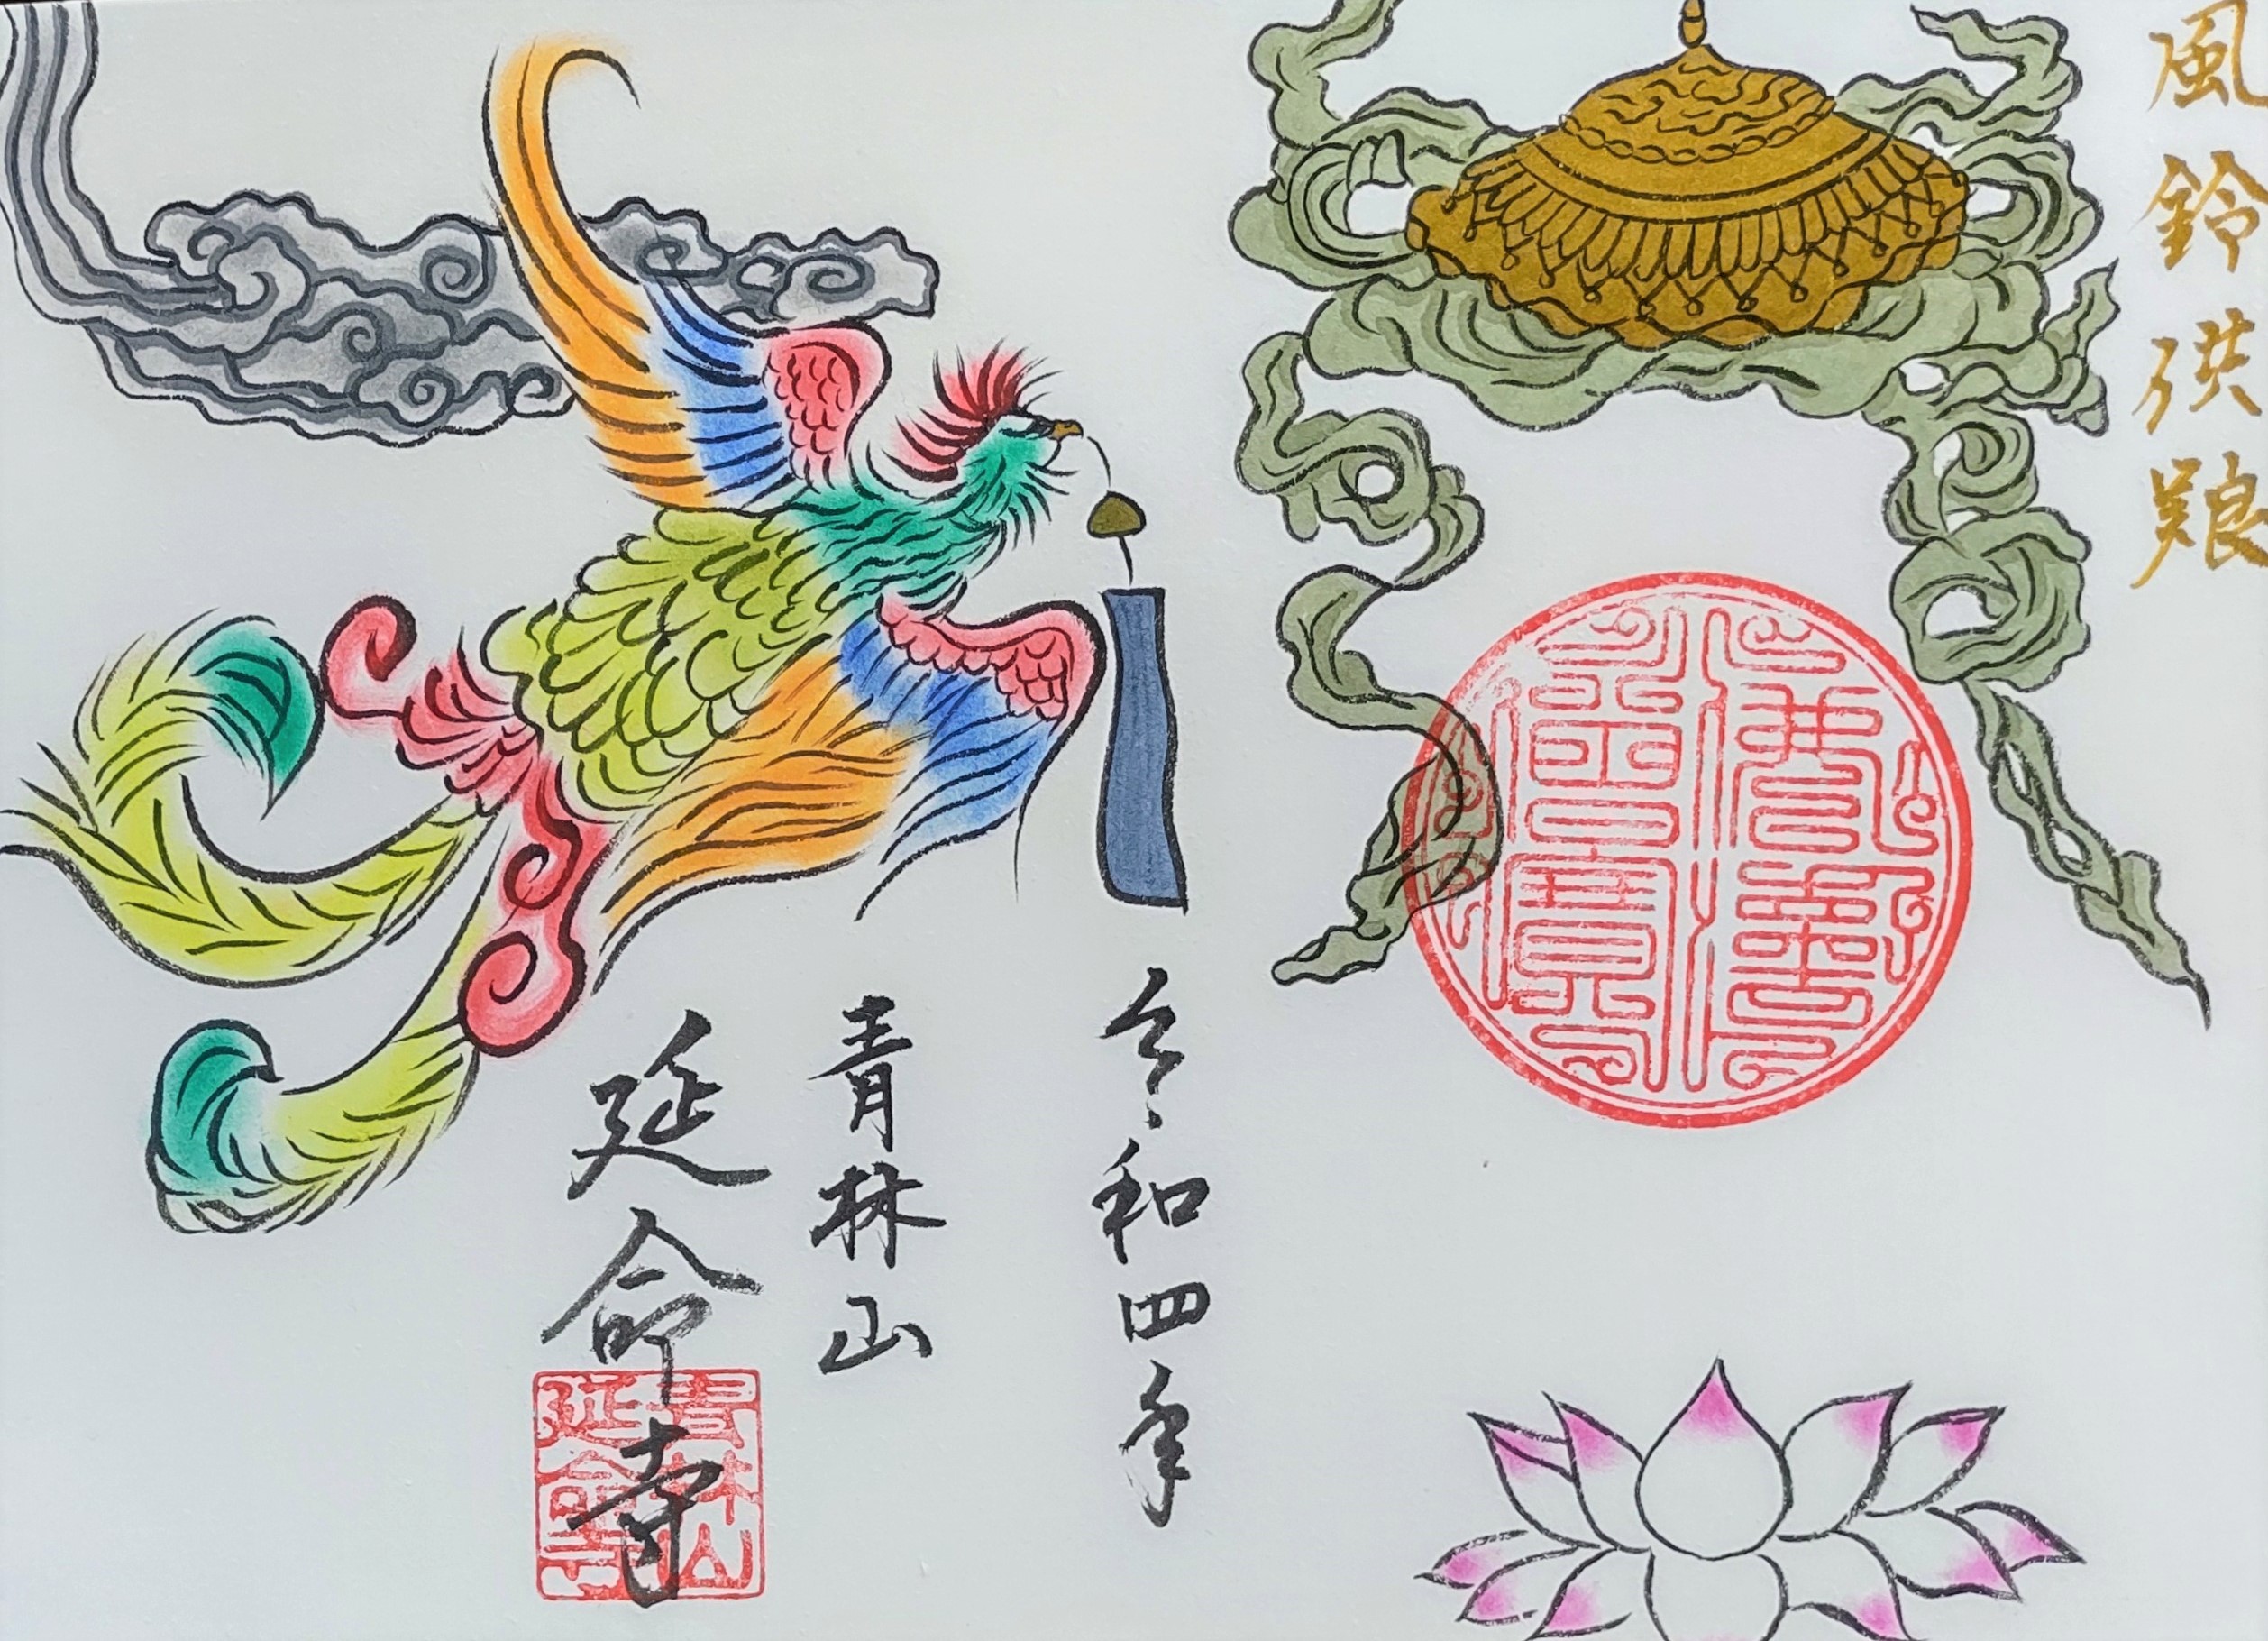 風鈴供養
佛法
僧寶
令和四年
青林山
延命寺
青林山
延命寺